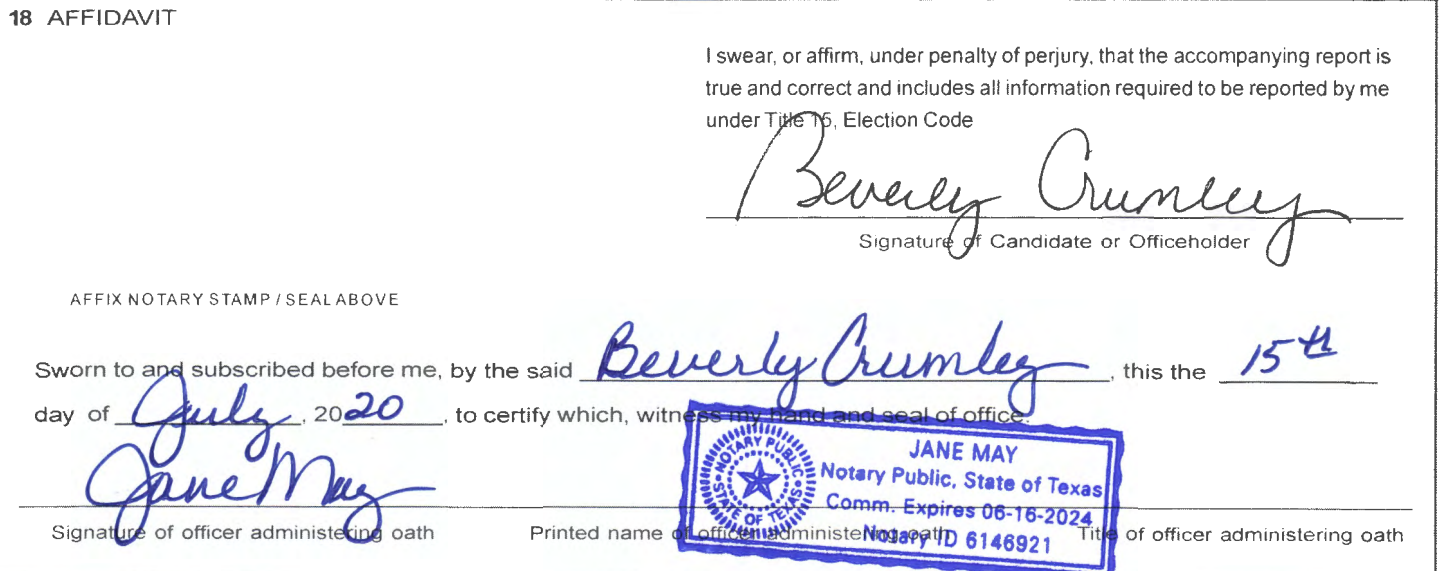 18 AFFIDAVIT
I swear, or affirm, under penalty of perjury, that the accompanying report is
true and correct and includes all information required to be reported by me
under Title 15, Election Code
Beverly Crumley
Signature of Candidate or Officeholder
AFFIX NOTARY STAMP / SEAL ABOVE
Sworn to and subscribed before me, by the said Beverly Crumley, this the 15th
day of July, 2020, to certify which, witness my hand and seal of office.
Jane May
NOTARY PUBLIC
STATE OF TEXAS
JANE MAY
Notary Public, State of Texas
Comm. Expires 06-16-2024
Notary ID 6146921
Signature of officer administering oath Printed name of officer administering oath Title of officer administering oath